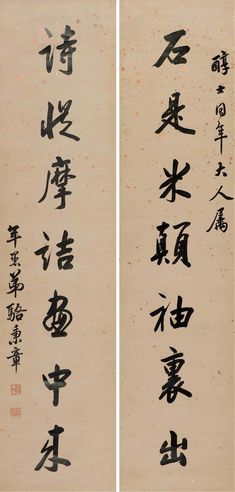 醇士同年大人属
石是米顛袖裏出
詩從摩詰画中来
年愚弟駱秉章